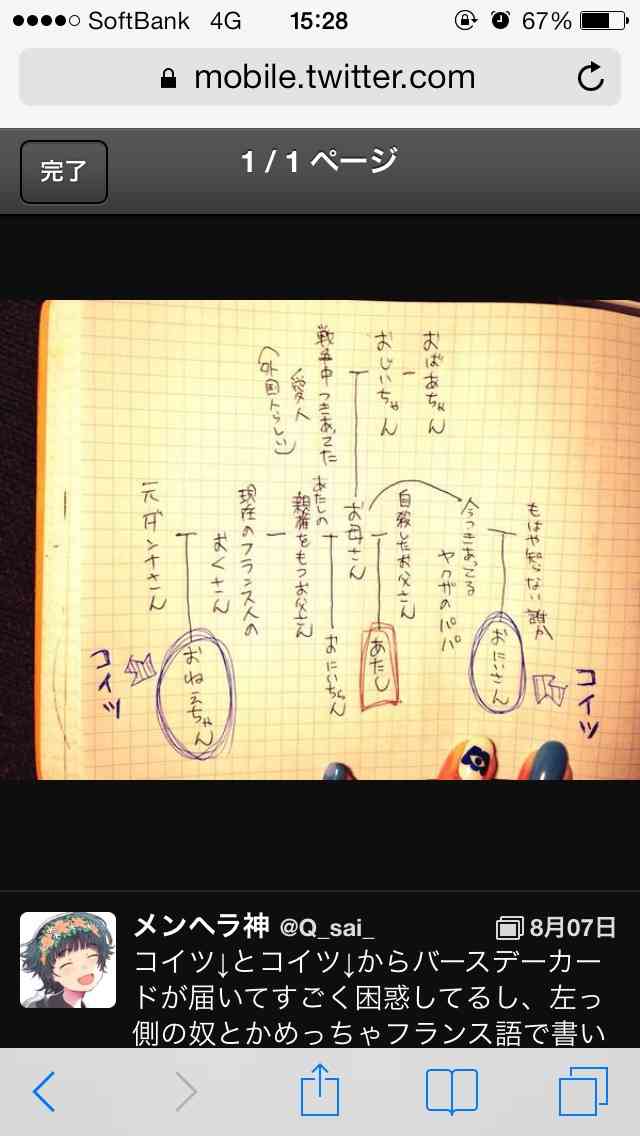 SoftBank 4G 15:28 67%
mobile.twitter.com
完了
1 / 1 ページ
おばあちゃん
おじいちゃん
戦争中つきあってた
愛人
(外国人らしい)
もはや知らない誰か
今つきあってる
ヤクザのパパ
自殺したお父さん
お母さん
あたしの
親権をもつお父さん
現在のフランス人の
おくさん
元ダンナさん
コイツ
おにいさん
あたし
おにいちゃん
おねえちゃん
コイツ
メンヘラ神 @Q_sai_ 8月07日
コイツ↓とコイツ↓からバースデーカー
ドが届いてすごく困惑してるし、左っ
側の奴とかめっちゃフランス語で書い